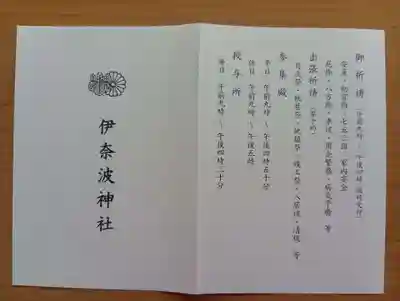 御祈祷(午前九時〜午後四時 随時受付)
安産・初宮詣・七五三詣・家内安全
厄除・八方除・車祓・商売繁盛・病気平癒 等
出張祈祷(要予約)
月次祭・秋葉祭・地鎮祭・竣工祭・入家祓・清祓 等
参集殿
平日 午前九時〜午後四時五十分
休日 午前九時〜午後五時
授与所
毎日 午前九時〜午後四時五十分
伊奈波神社